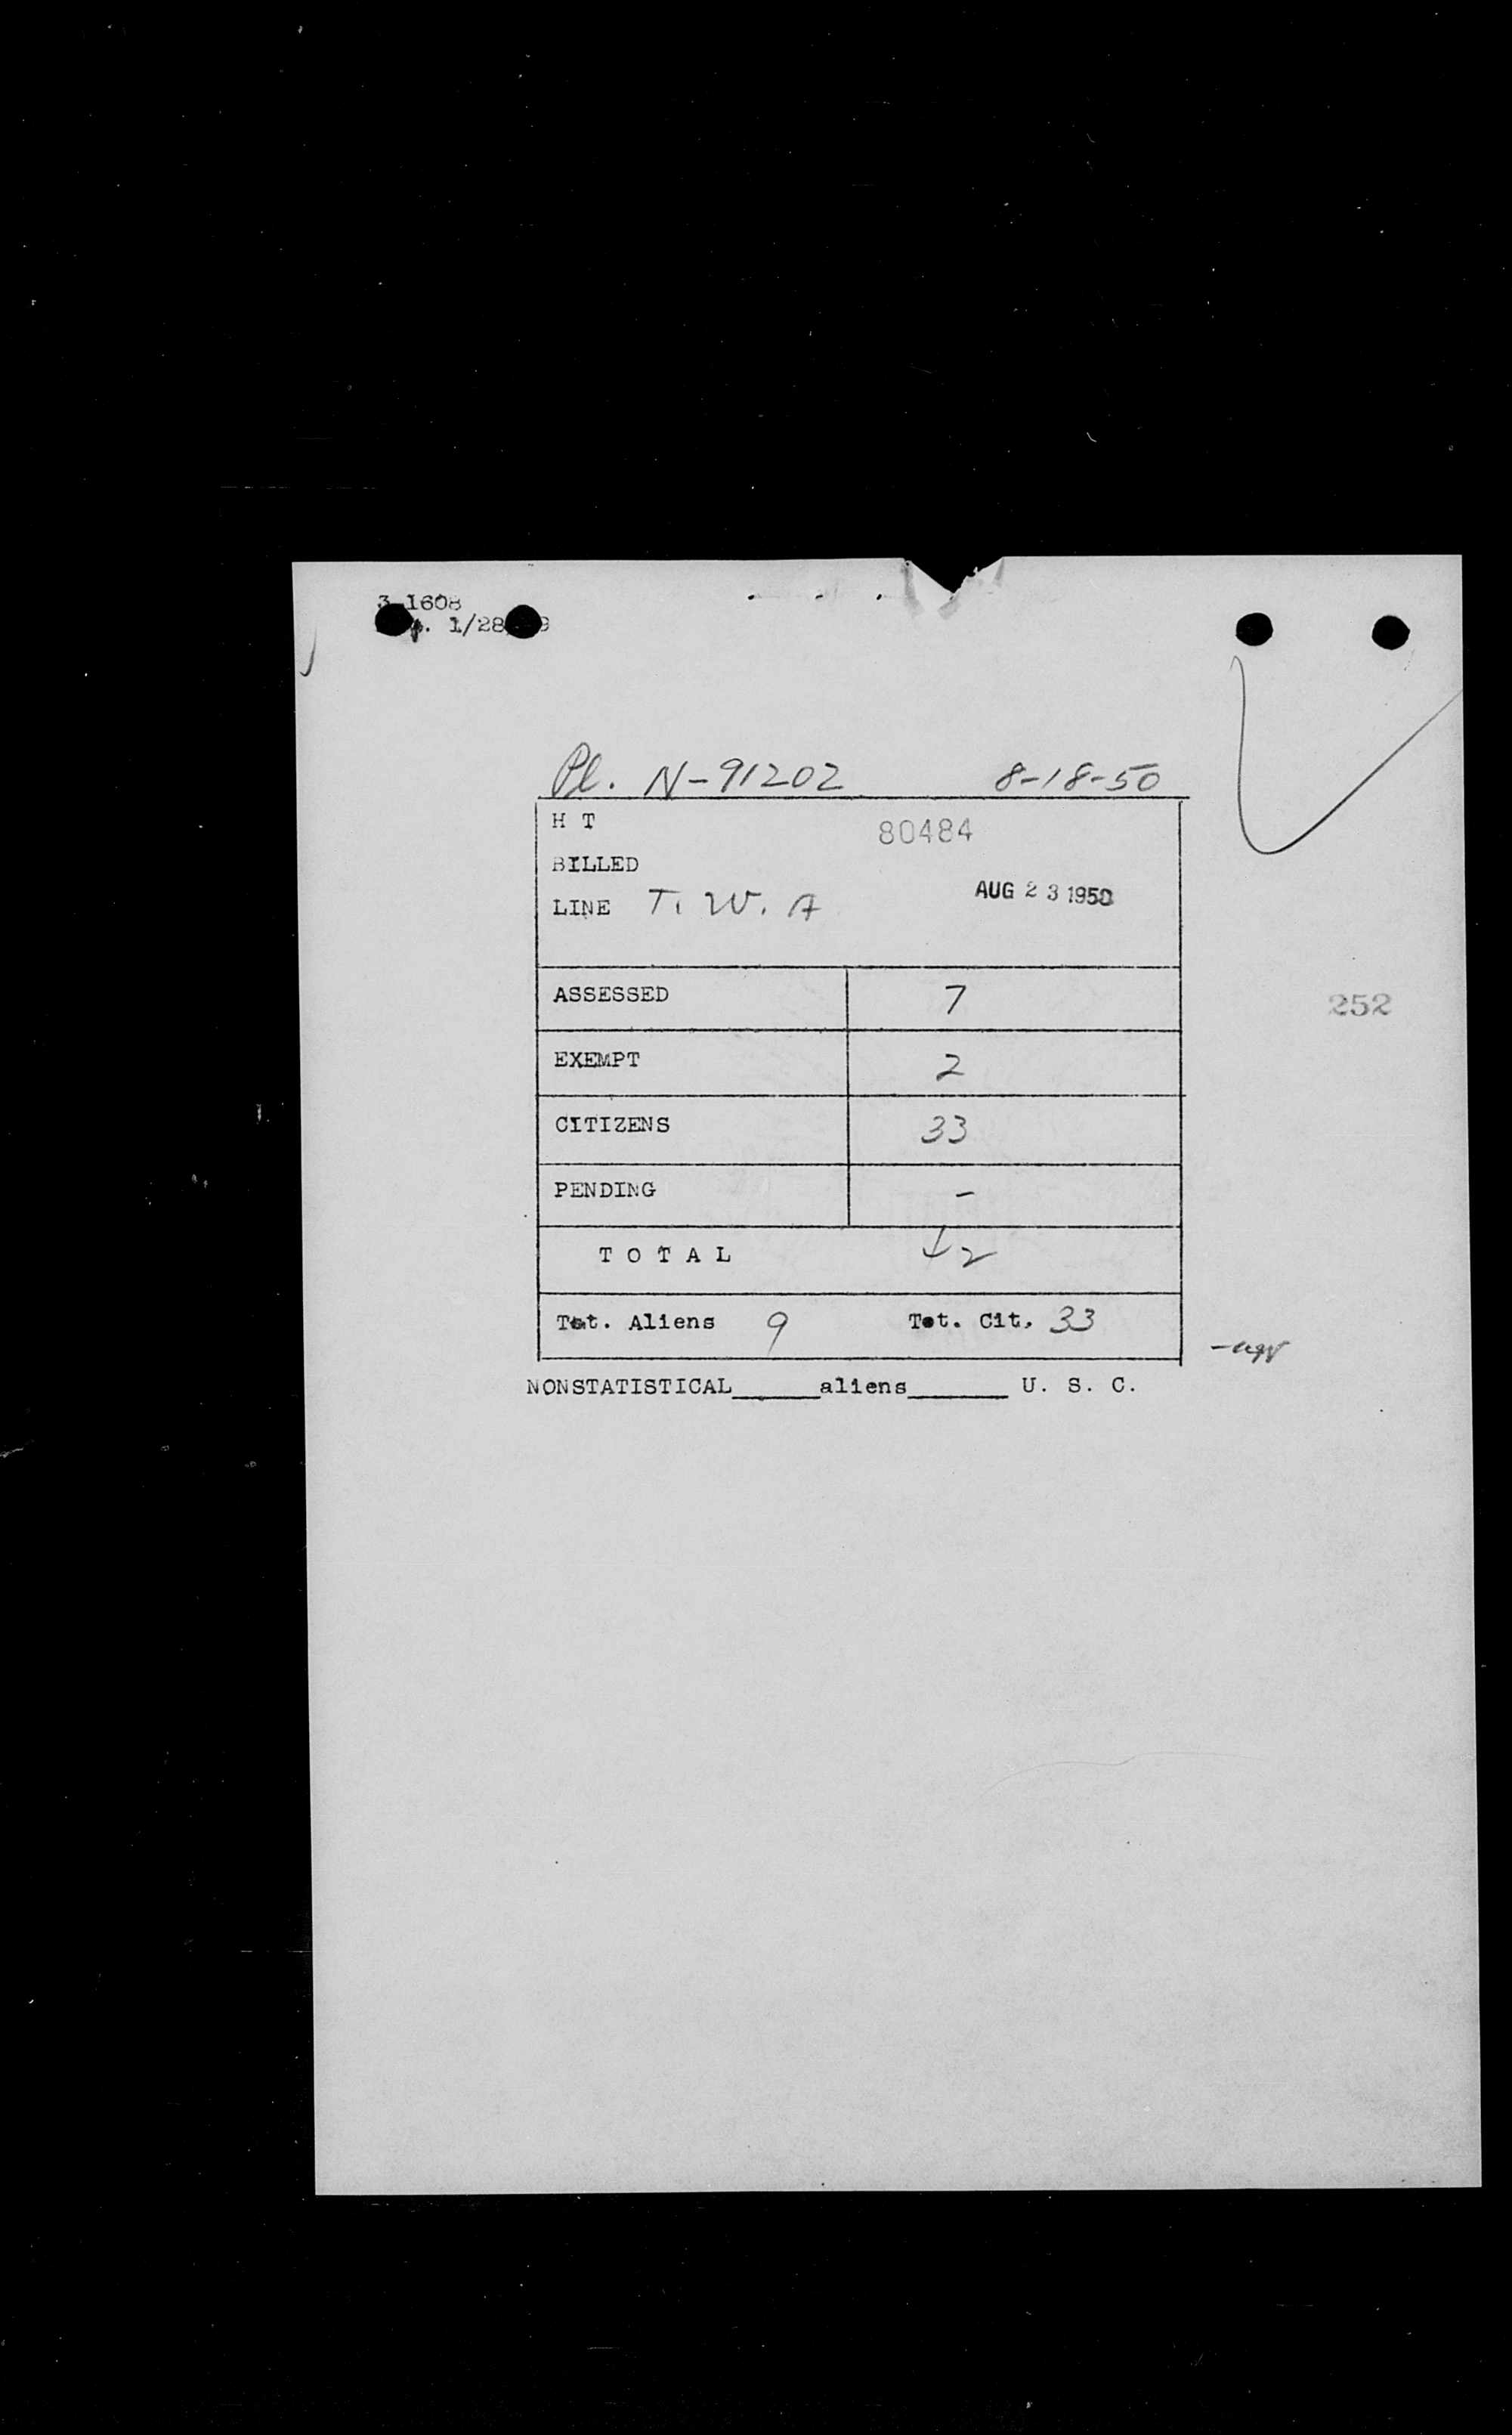 3-1608
1/28
Pl. N-91202 8-18-50
H T 80484
BILLED
LINE T. W. A AUG 23 1950
ASSESSED 7
252
EXEMPT 2
CITIZENS 33
PENDING -
T O T A L 42
Tot. Aliens 9 Tot. Cit. 33
NONSTATISTICAL______aliens______ U. S. C.